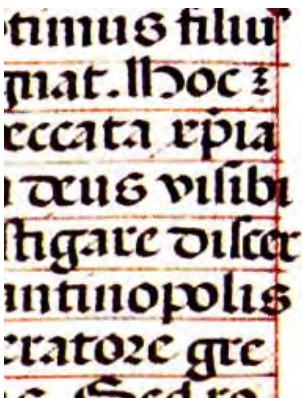 timus filiu
gnat. Hoc ⁊
eccata xp̃ia
deus visibi
stigare discer
antinopolis
eratore gre
Sed ro